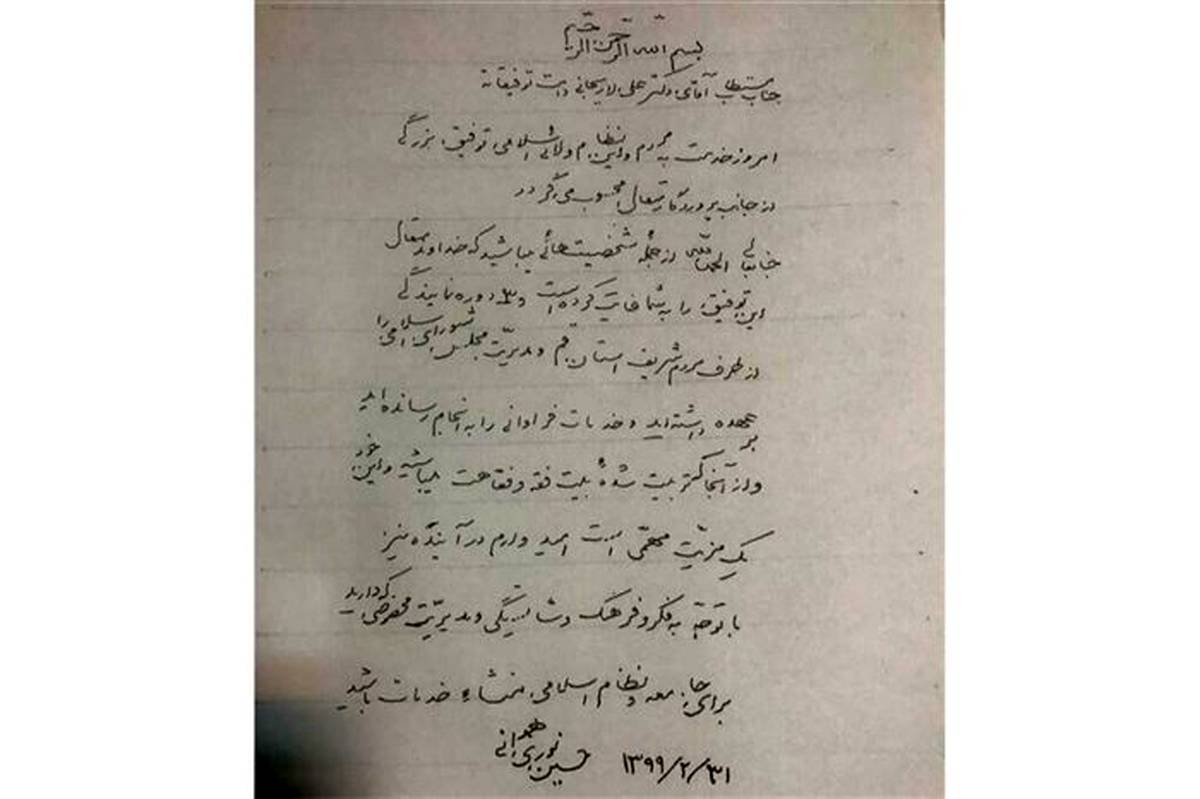 بسم الله الرحمن الرحیم
جناب مستطاب آقای دکتر علی لاریجانی دامت توفیقاته
امروز خدمت به مردم و این نظام ولائی اسلامی، توفیق بزرگی
از جانب پروردگار متعال محسوب می‌گردد
جنابعالی الحمدلله از جمله شخصیت‌هائی میباشید که خداوند متعال
این توفیق را به شما عنایت کرده است و ۳ دوره نمایندگی
از طرف مردم شریف استان قم و مدیریت مجلس شورای اسلامی را
بر عهده داشته‌اید و خدمات فراوانی را به انجام رسانده‌اید
و از آنجا که تربیت شدهٔ بیت فقه و فقاهت میباشید و این خود
یک مزیّت مهمّی است امید وارم در آینده نیز
با توجّه به فکر و فرهنگ و شایستگی و مدیریّت مخصوصی که دارید
برای جامعه و نظام اسلامی، منشاء خدمات باشید
۱۳۹۹/۲/۳۱ حسین نوری همدانی